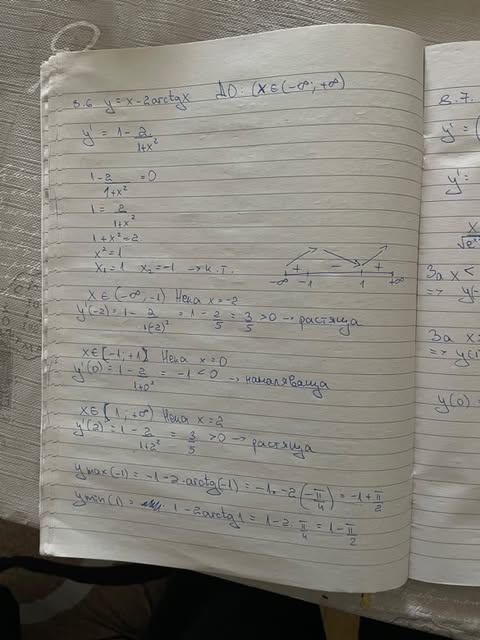 3.6 y = x - 2arctgx ДО: (x∈(-∞; +∞)
y' = 1 - 2/(1+x²)
1 - 2/(1+x²) = 0
1 = 2/(1+x²)
1 + x² = 2
x² = 1
x₁ = 1 x₂ = -1 → к.т.
+ - +
-∞ -1 1 +∞
x∈(-∞, -1) Нека x = -2
y'(-2) = 1 - 2/(1(-2)²) = 1 - 2/5 = 3/5 > 0 → растяща
x∈[-1; +1] Нека x = 0
y'(0) = 1 - 2/(1+0²) = -1 < 0 → намаляваща
x∈[1; +∞) Нека x = 2
y'(2) = 1 - 2/(1+2²) = 3/5 > 0 → растяща
ymax(-1) = -1 - 2.arctg(-1) = -1 - 2(-π/4) = -1 + π/2
ymin(1) = 1 - 2arctg1 = 1 - 2.π/4 = 1 - π/2
3.7.
y' = (
y' =
За x <
=> y(-
За x >
=> y(1
y(0) =